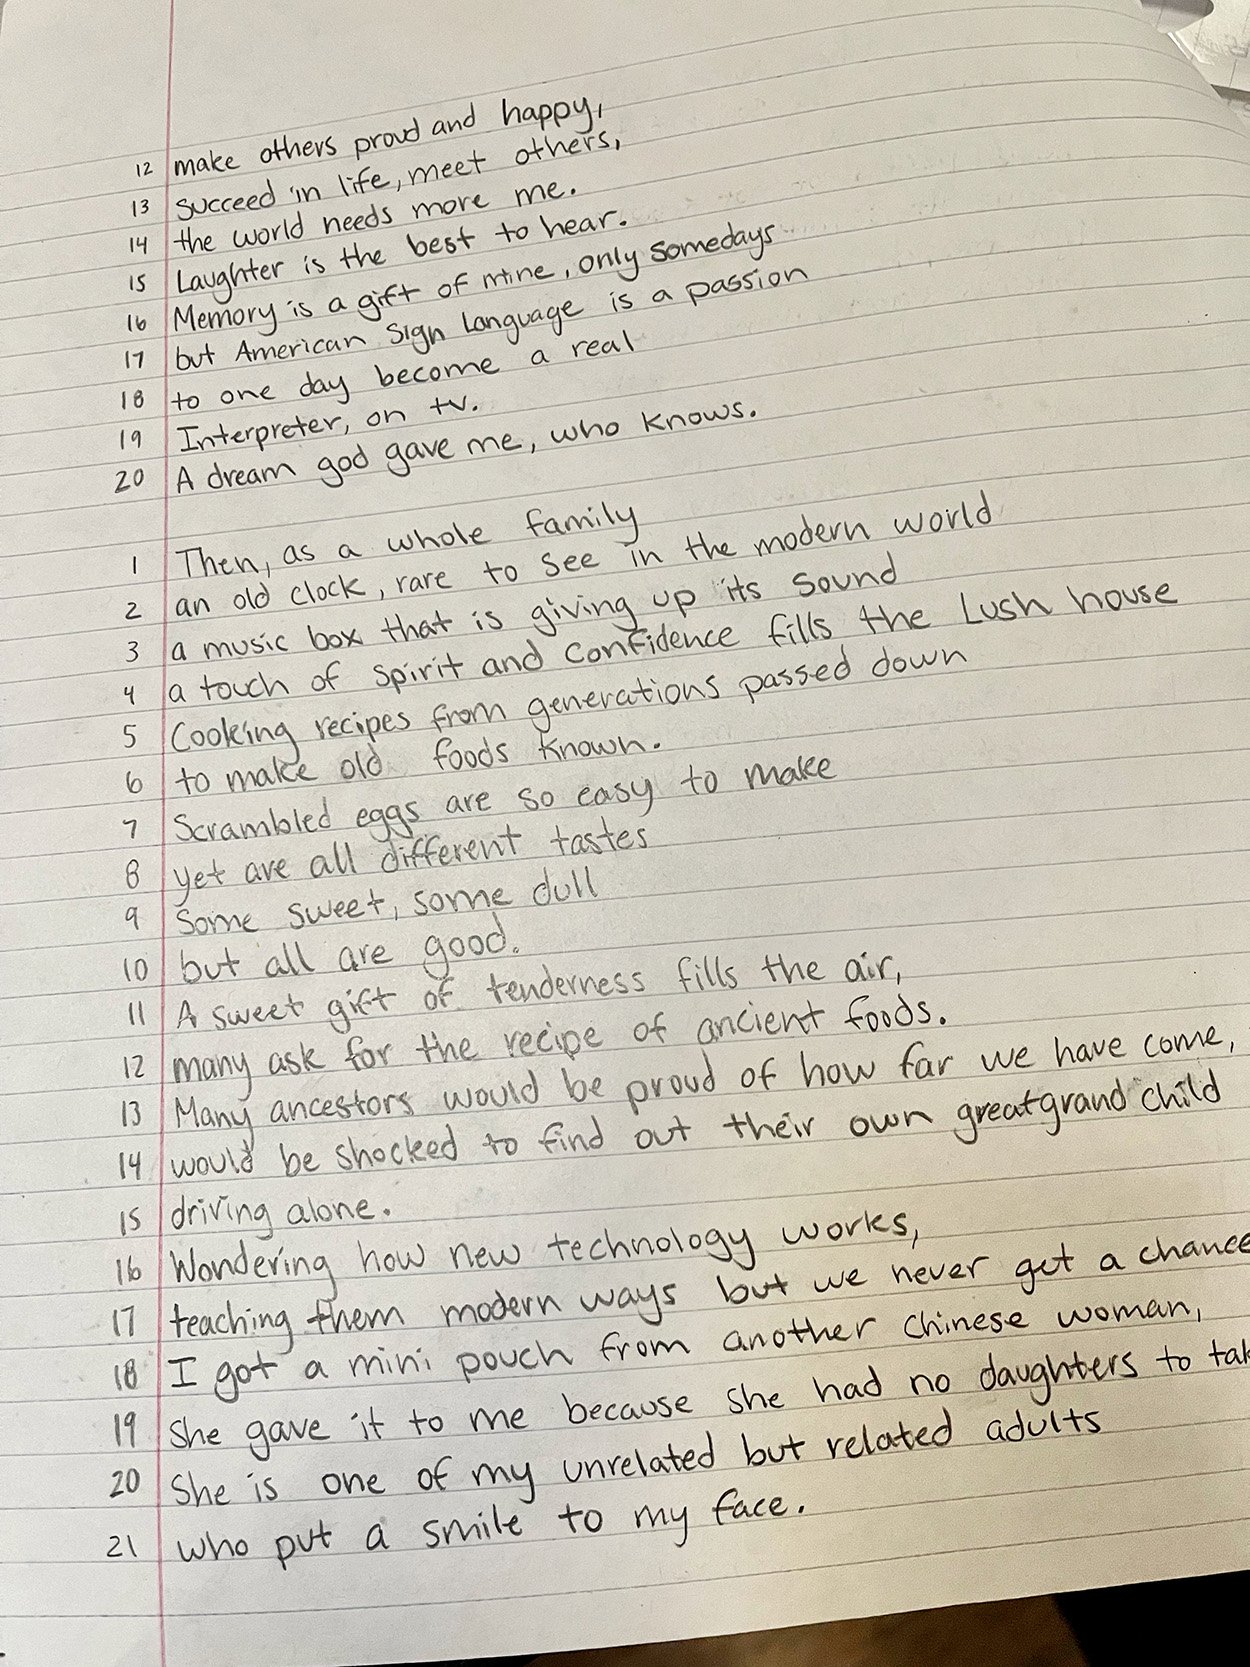 12 make others proud and happy,
13 succeed in life, meet others,
14 the world needs more me.
15 Laughter is the best to hear.
16 Memory is a gift of mine, only somedays
17 but American Sign Language is a passion
18 to one day become a real
19 Interpreter, on tv.
20 A dream god gave me, who knows.
1 Then, as a whole family
2 an old clock, rare to see in the modern world
3 a music box that is giving up its sound
4 a touch of spirit and confidence fills the Lush house
5 Cooking recipes from generations passed down
6 to make old foods known.
7 Scrambled eggs are so easy to make
8 yet are all different tastes
9 Some sweet, some dull
10 but all are good.
11 A sweet gift of tenderness fills the air,
12 many ask for the recipe of ancient foods.
13 Many ancestors would be proud of how far we have come,
14 would be shocked to find out their own greatgrand child
15 driving alone.
16 Wondering how new technology works,
17 teaching them modern ways but we never get a chance
18 I got a mini pouch from another Chinese woman,
19 She gave it to me because she had no daughters to
20 She is one of my unrelated but related adults
21 who put a smile to my face.